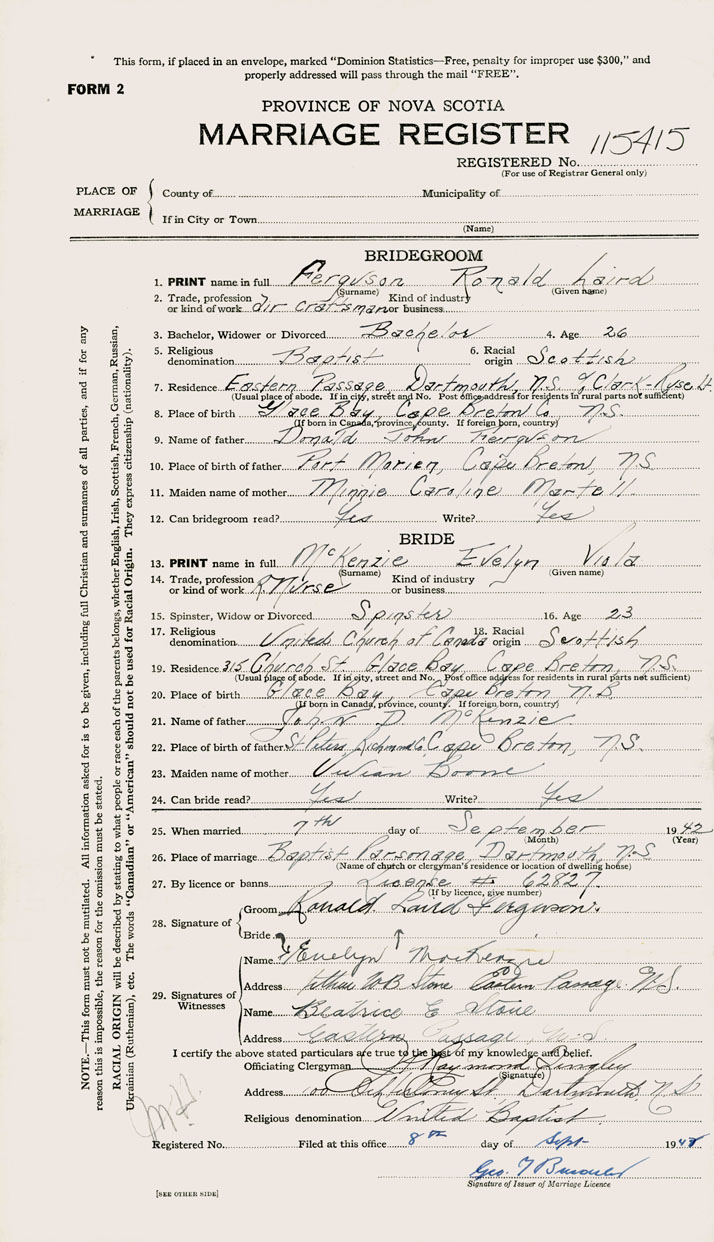 This form, if placed in an envelope, marked "Dominion Statistics—Free, penalty for improper use $300," and
properly addressed will pass through the mail "FREE".
FORM 2
PROVINCE OF NOVA SCOTIA
MARRIAGE REGISTER
115415
REGISTERED No.
(For use of Registrar General only)
PLACE OF MARRIAGE
County of Municipality of
If in City or Town
(Name)
BRIDEGROOM
1. PRINT name in full Ferguson Ronald Laird
(Surname) (Given name)
2. Trade, profession or kind of work air craftsman Kind of industry or business
3. Bachelor, Widower or Divorced Bachelor 4. Age 26
5. Religious denomination Baptist 6. Racial origin Scottish
7. Residence Eastern Passage, Dartmouth, N.S.
(Usual place of abode. If in city, street and No. Post office address for residents in rural parts not sufficient)
8. Place of birth Glace Bay, Cape Breton Co. N.S.
(If born in Canada, province, county. If foreign born, country)
9. Name of father Donald John Ferguson
10. Place of birth of father Port Morien, Cape Breton, N.S
11. Maiden name of mother Minnie Caroline Martell
12. Can bridegroom read? Yes Write? Yes
BRIDE
13. PRINT name in full McKenzie Evelyn Viola
(Surname) (Given name)
14. Trade, profession or kind of work R. Nurse Kind of industry or business
15. Spinster, Widow or Divorced Spinster 16. Age 23
17. Religious denomination United Church of Canada 18. Racial origin Scottish
19. Residence 315 Church St Glace Bay, Cape Breton, N.S.
(Usual place of abode. If in city, street and No. Post office address for residents in rural parts not sufficient)
20. Place of birth Glace Bay, Cape Breton N.B
(If born in Canada, province, county. If foreign born, country)
21. Name of father John D. McKenzie
22. Place of birth of father St. Peters, Richmond Co. Cape Breton, N.S.
23. Maiden name of mother Vivian Boone
24. Can bride read? Yes Write? Yes
25. When married 7th day of September 1942
(Month) (Year)
26. Place of marriage Baptist Parsonage, Dartmouth, N-S
(Name of church or clergyman's residence or location of dwelling house)
27. By licence or banns License # 62827
(If by licence, give number)
28. Signature of
Groom Ronald Laird Ferguson
Bride
29. Signatures of Witnesses
Name Evelyn MacKenzie
Address Arthur WB Stone Eastern Passage N.S.
Name Beatrice E Stone
Address Eastern Passage, N-S.
I certify the above stated particulars are true to the best of my knowledge and belief.
Officiating Clergyman Raymond
(Signature)
Address St. Dartmouth, N S
Religious denomination United Baptist
Registered No. Filed at this office 8th day of Sept 194
Geo.
Signature of Issuer of Marriage Licence
[SEE OTHER SIDE]
NOTE.—This form must not be mutilated. All information asked for is to be given, including full Christian and surnames of all parties, and if for any
reason this is impossible, the reason for the omission must be stated.
RACIAL ORIGIN will be described by stating to what people or race each of the parents belongs, whether English, Irish, Scottish, French, German, Russian,
Ukrainian (Ruthenian), etc. The words "Canadian" or "American" should not be used for Racial Origin. They express citizenship (nationality).